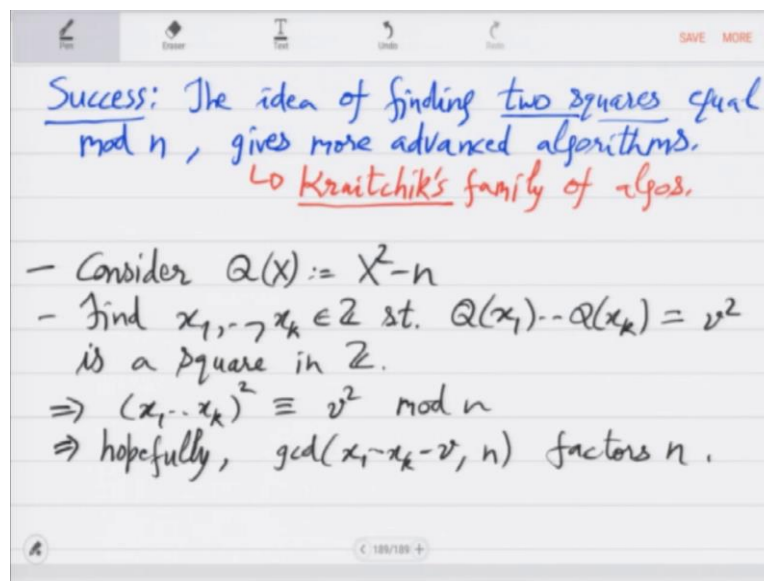 Pen Eraser Text Undo Redo SAVE MORE
Success: The idea of finding two squares equal
mod n, gives more advanced algorithms.
↳ Kraitchik's family of algos.
- Consider Q(X) := X²-n
- Find x₁,..,x_k ∈ ℤ st. Q(x₁)..Q(x_k) = v²
is a square in ℤ.
⇒ (x₁..x_k)² ≡ v² mod n
⇒ hopefully, gcd(x₁..x_k-v, n) factors n.
< 189/189 +